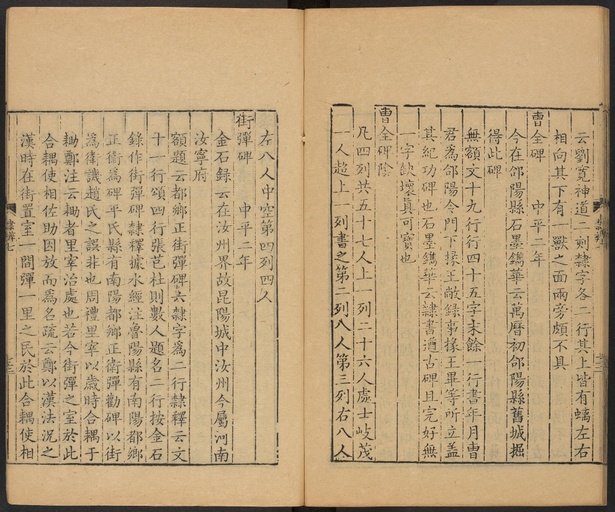 云劉寬神道二刻隸字各二行其上皆有螭左右
相向其下有一獸之面兩旁頗不具
曹全碑　中平二年
今在郃陽縣石墨鐫華云萬曆初郃陽縣舊城掘
得此碑
無額文十九行行四十五字末餘一行書年月曹
君爲郃陽令門下掾王敞錄事掾王畢等所立蓋
其紀功碑也石墨鐫華云隸書遒古碑且完好無
一字缺壞眞可寶也
曹全碑陰
凡四列共五十七人上一列二十六人處士岐茂
一人超上一列書之第二列八人第三列右八人
左八人中空第四列四人
街彈碑　中平二年
金石錄云在汝州界故昆陽城中汝州今屬河南
汝寧府
額題云都鄉正街彈碑六隸字爲二行隸釋云文
十一行頌四行張芭杜則數人題名二行按金石
錄作街彈碑隸釋據水經注魯陽縣有南陽都鄉
正衛爲碑平氏縣有南陽都鄉正衛彈勸碑以街
爲衛議趙氏之誤非也周禮里宰以歲時合耦于
耡鄭注云耡者里宰治處也若今街彈之室於此
合耦使相佐助因放而爲名疏云鄭以漢法況之
漢時在街置室一間彈一里之民於此合耦使相